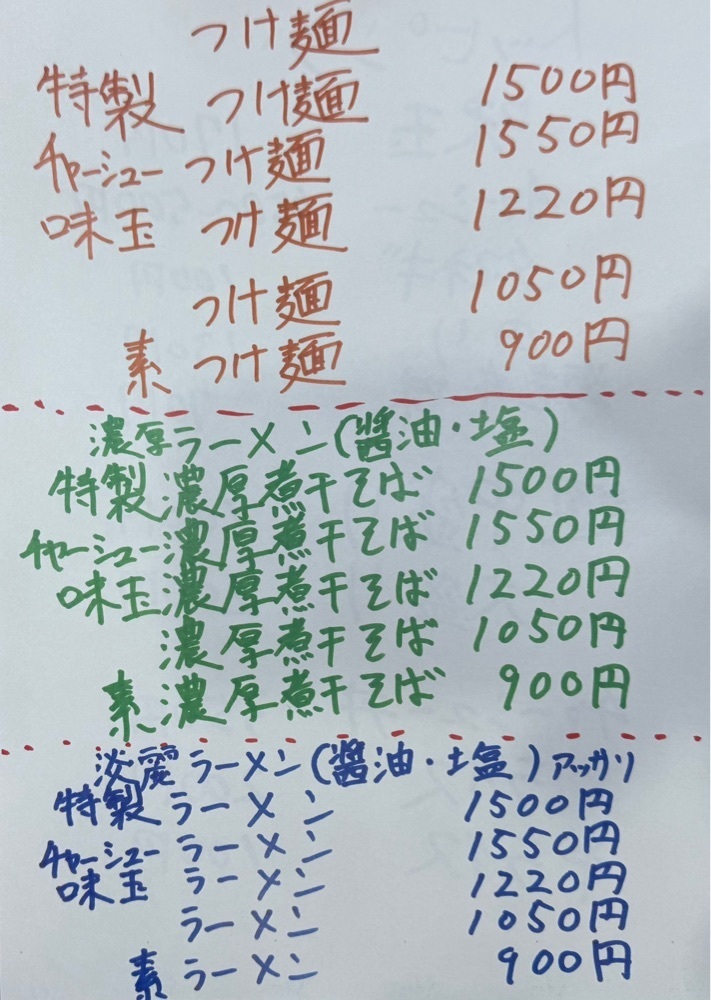 つけ麺
特製 つけ麺 1500円
チャーシュー つけ麺 1550円
味玉 つけ麺 1220円
つけ麺 1050円
素 つけ麺 900円
濃厚ラーメン(醤油・塩)
特製濃厚煮干そば 1500円
チャーシュー濃厚煮干そば 1550円
味玉濃厚煮干そば 1220円
濃厚煮干そば 1050円
素濃厚煮干そば 900円
淡麗ラーメン(醤油・塩)アッサリ
特製ラーメン 1500円
チャーシューラーメン 1550円
味玉ラーメン 1220円
ラーメン 1050円
素ラーメン 900円